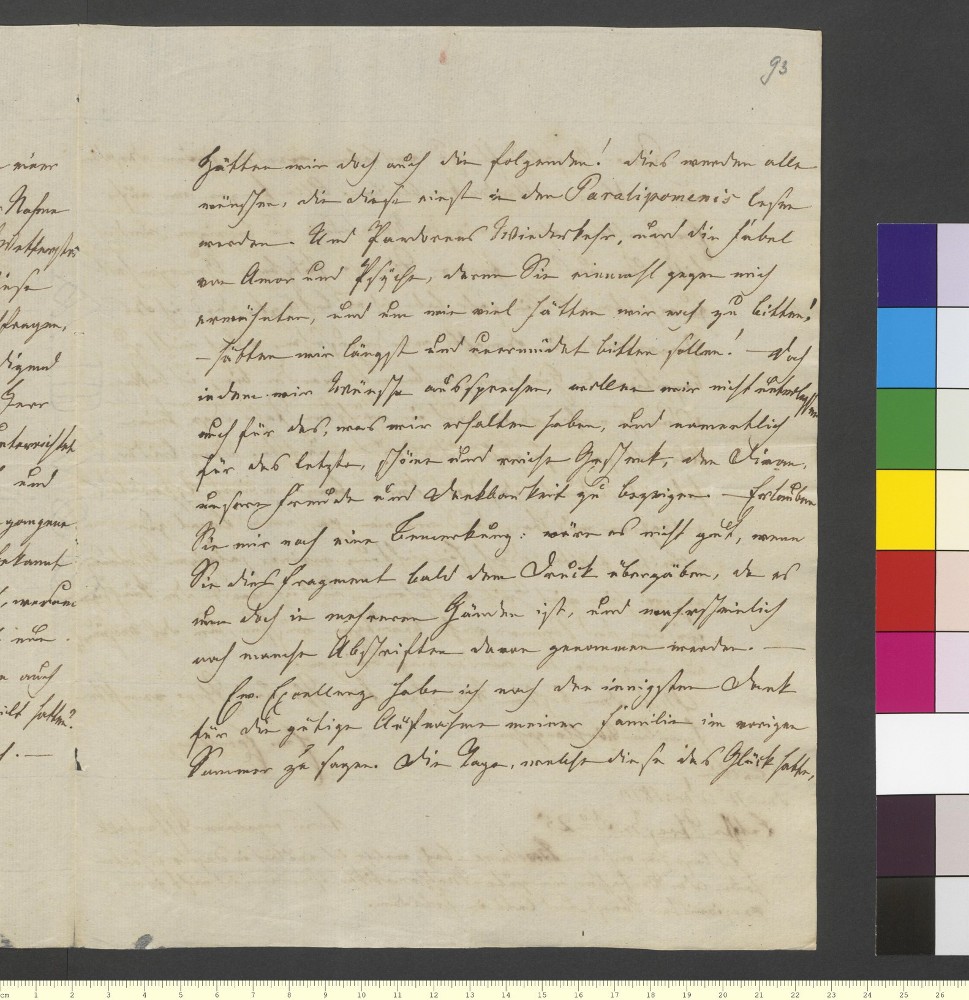 93
Hätten wir doch auch die folgenden! dies werden alle
wünschen, die diese einst in den Paralipomenis lesen
werden. Und Pandorens Wiederkehr, und die Fabel
von Amor und Psyche, deren Sie einmahl gegen mich
erwähnten, und um wie viel hätten wir noch zu bitten!
– hätten wir längst und unermüdet bitten sollen! – Doch
indem wir Wünsche aussprechen, wollen wir nicht unterlassen
auch für das, was wir erhalten haben, und namentlich
für das letzte, schöne und reiche Geschenk, den Divan,
unsere Freude und Dankbarkeit zu bezeigen. – Erlauben
Sie mir noch eine Bemerkung: wäre es nicht gut, wenn
Sie dies Fragment bald dem Druck übergäben, da es
nun doch in mehreren Händen ist, und wahrscheinlich
noch manche Abschriften davon genommen werden. —
Ew. Excellenz habe ich noch den innigsten Dank
für die gütige Aufnahme meiner Familie im vorigen
Sommer zu sagen. Die Tage, welche diese das Glück hatte,
einer
Nahme
diese
fragen,
Herr
unterrichtet
und
gangene
bekannt
, warum
nun.
auch
hatte?